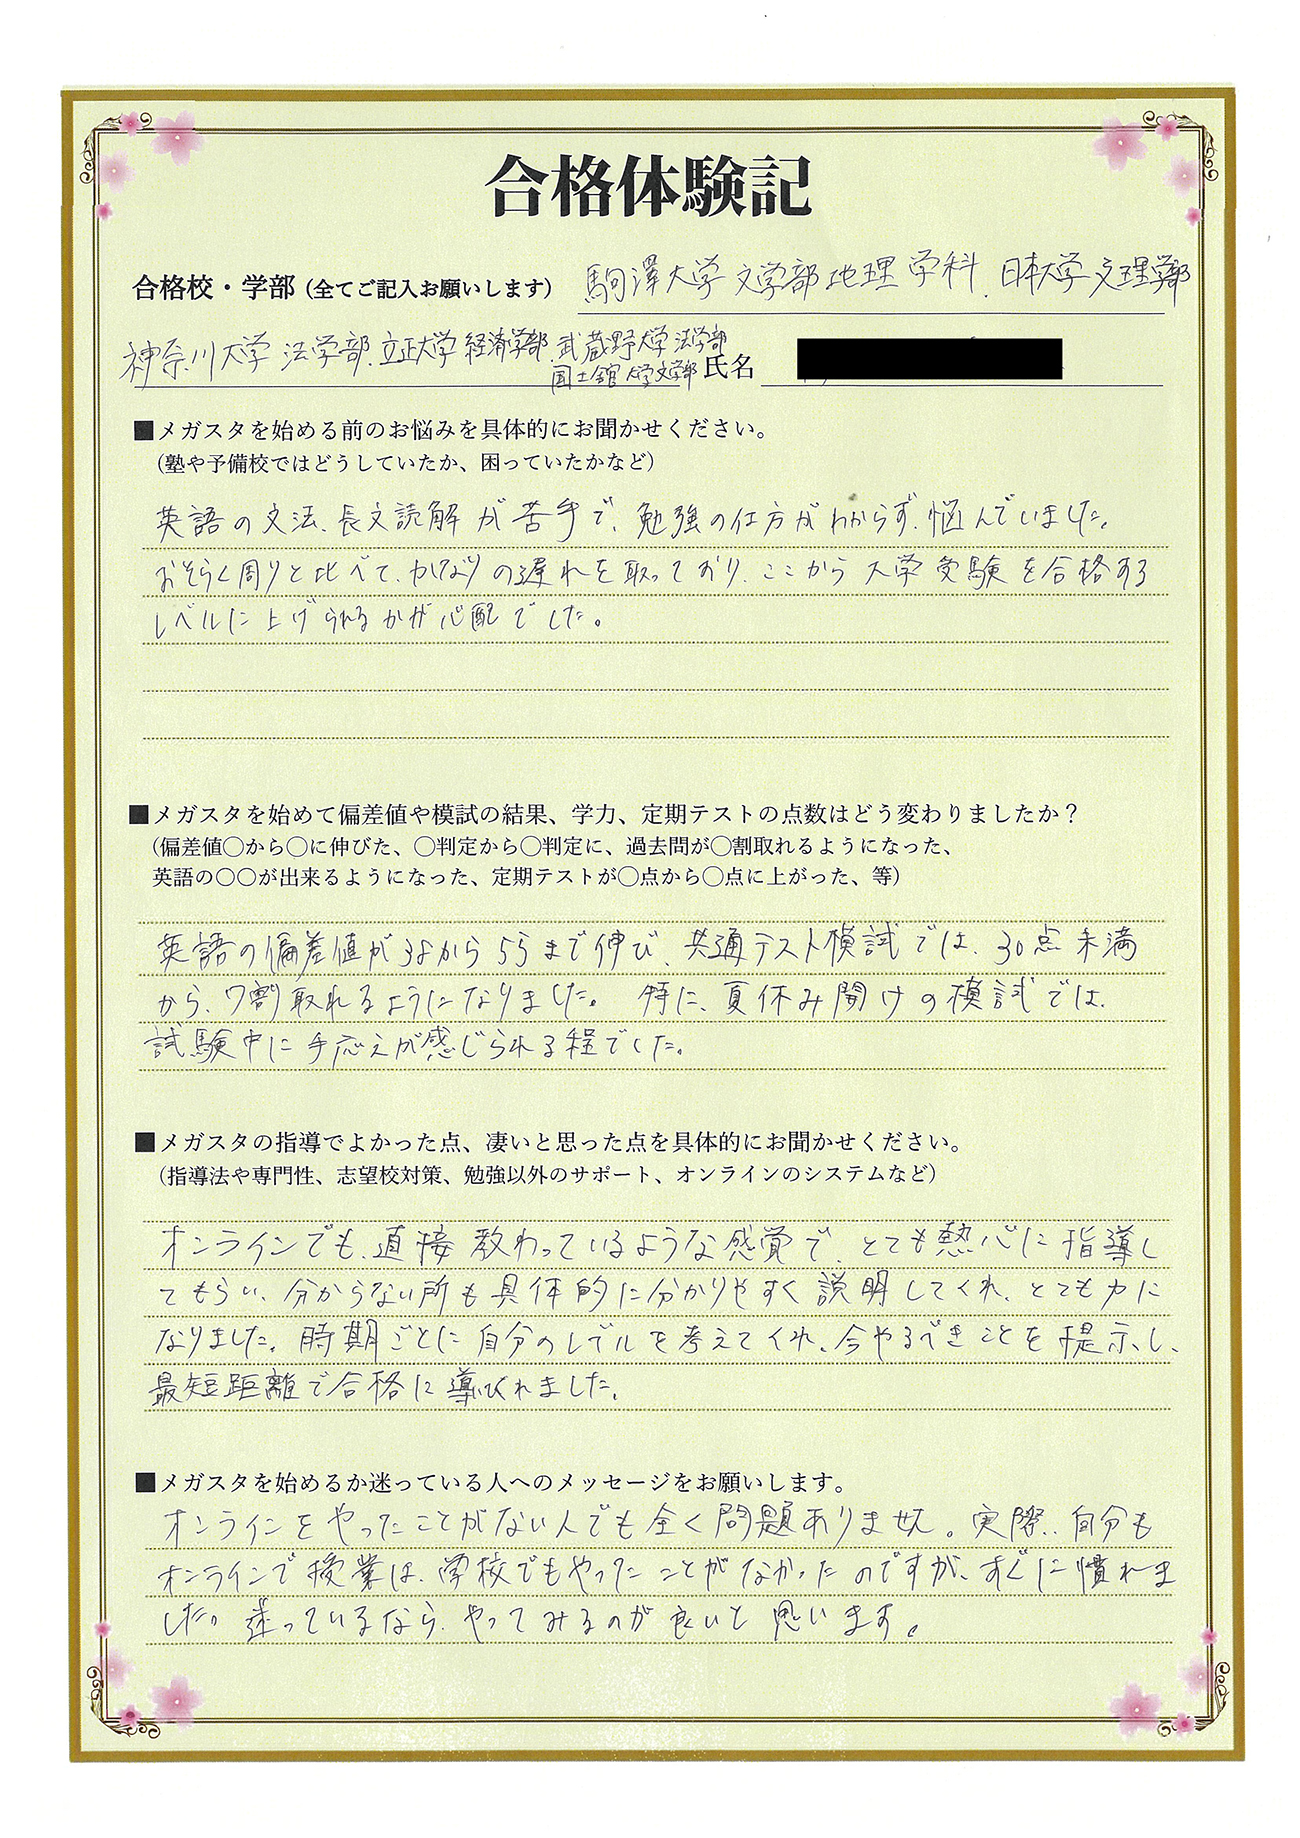 合格体験記
合格校・学部(全てご記入お願いします) 駒澤大学文学部地理学科、日本大学文理学部
神奈川大学法学部、立正大学経済学部、武蔵野大学法学部
国士舘大学文学部 氏名
■メガスタを始める前のお悩みを具体的にお聞かせください。
(塾や予備校ではどうしていたか、困っていたかなど)
英語の文法、長文読解が苦手で、勉強の仕方がわからず、悩んでいました。
おそらく周りと比べて、かなりの遅れを取っており、ここから大学受験を合格する
レベルに上げられるかが心配でした。
■メガスタを始めて偏差値や模試の結果、学力、定期テストの点数はどう変わりましたか？
(偏差値〇から〇に伸びた、〇判定から〇判定に、過去問が〇割取れるようになった、
英語の〇〇が出来るようになった、定期テストが〇点から〇点に上がった、等)
英語の偏差値が38から55まで伸び、共通テスト模試では、30点未満
から、7割取れるようになりました。特に、夏休み開けの模試では、
試験中に手応えが感じられる程でした。
■メガスタの指導でよかった点、凄いと思った点を具体的にお聞かせください。
(指導法や専門性、志望校対策、勉強以外のサポート、オンラインのシステムなど)
オンラインでも、直接教わっているような感覚で、とても熱心に指導し
てもらい、分からない所も具体的に分かりやすく説明してくれ、とても力に
なりました。時期ごとに自分のレベルを考えてくれ、今やるべきことを提示し、
最短距離で合格に導びかれました。
■メガスタを始めるか迷っている人へのメッセージをお願いします。
オンラインをやったことがない人でも全く問題ありません。実際、自分も
オンラインで授業は、学校でもやったことがなかったのですが、すぐに慣れま
した。迷っているなら、やってみるのが良いと思います。